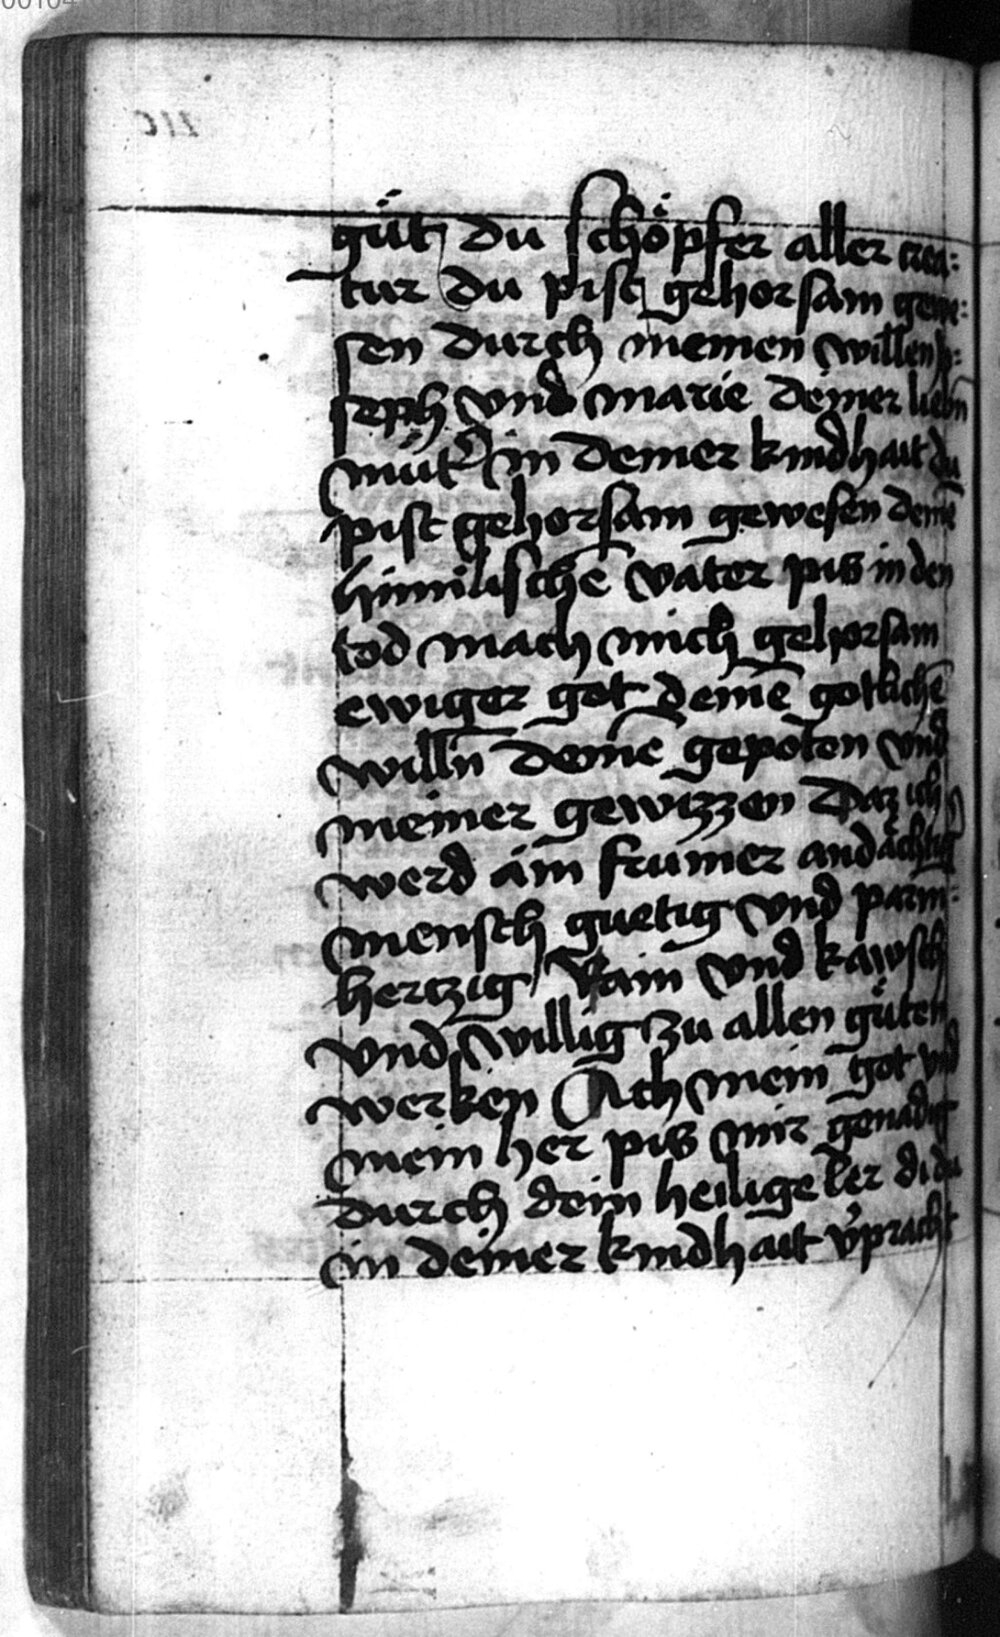 güt du schöpfer aller crea:
tur du pist gehorsam gewe:
sen durch meinen willen Jo:
seph vnd marie deiner liebn̄
müt̓ in deiner kindhait du
pist gehorsam gewesen deinē
himilischē vater pis in den
tod mach mich gehorsam
ewiger got deinē gotlichē
willn̄ deinē gepoten vnd
meiner gewizzen Daz ich
werd ain frumer andächtig
mensch guetig vnd parm:
hertzig Rain vnd kawsch
vnd willig zu allen güten
werken Ach mein got vnd
mein her pis mir genadig
durch dein heilige ler di du
in deiner kindhait v̓pracht